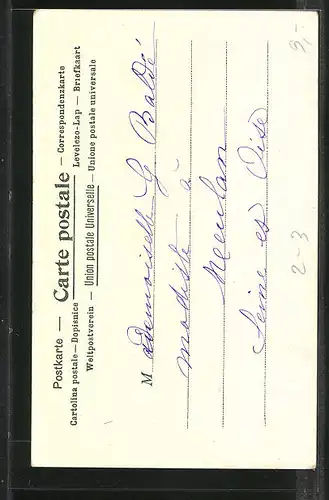 Postkarte — Carte postale — Correspondenzkarte
Cartolina postale — Dopisnice Levelezo-Lap — Briefkaart
Weltpostverein — Union postale Universelle — Unione postale universale
Mademoiselle G Baldé
modiste à
Meeulan
Seine es Oise
2-3
9,-